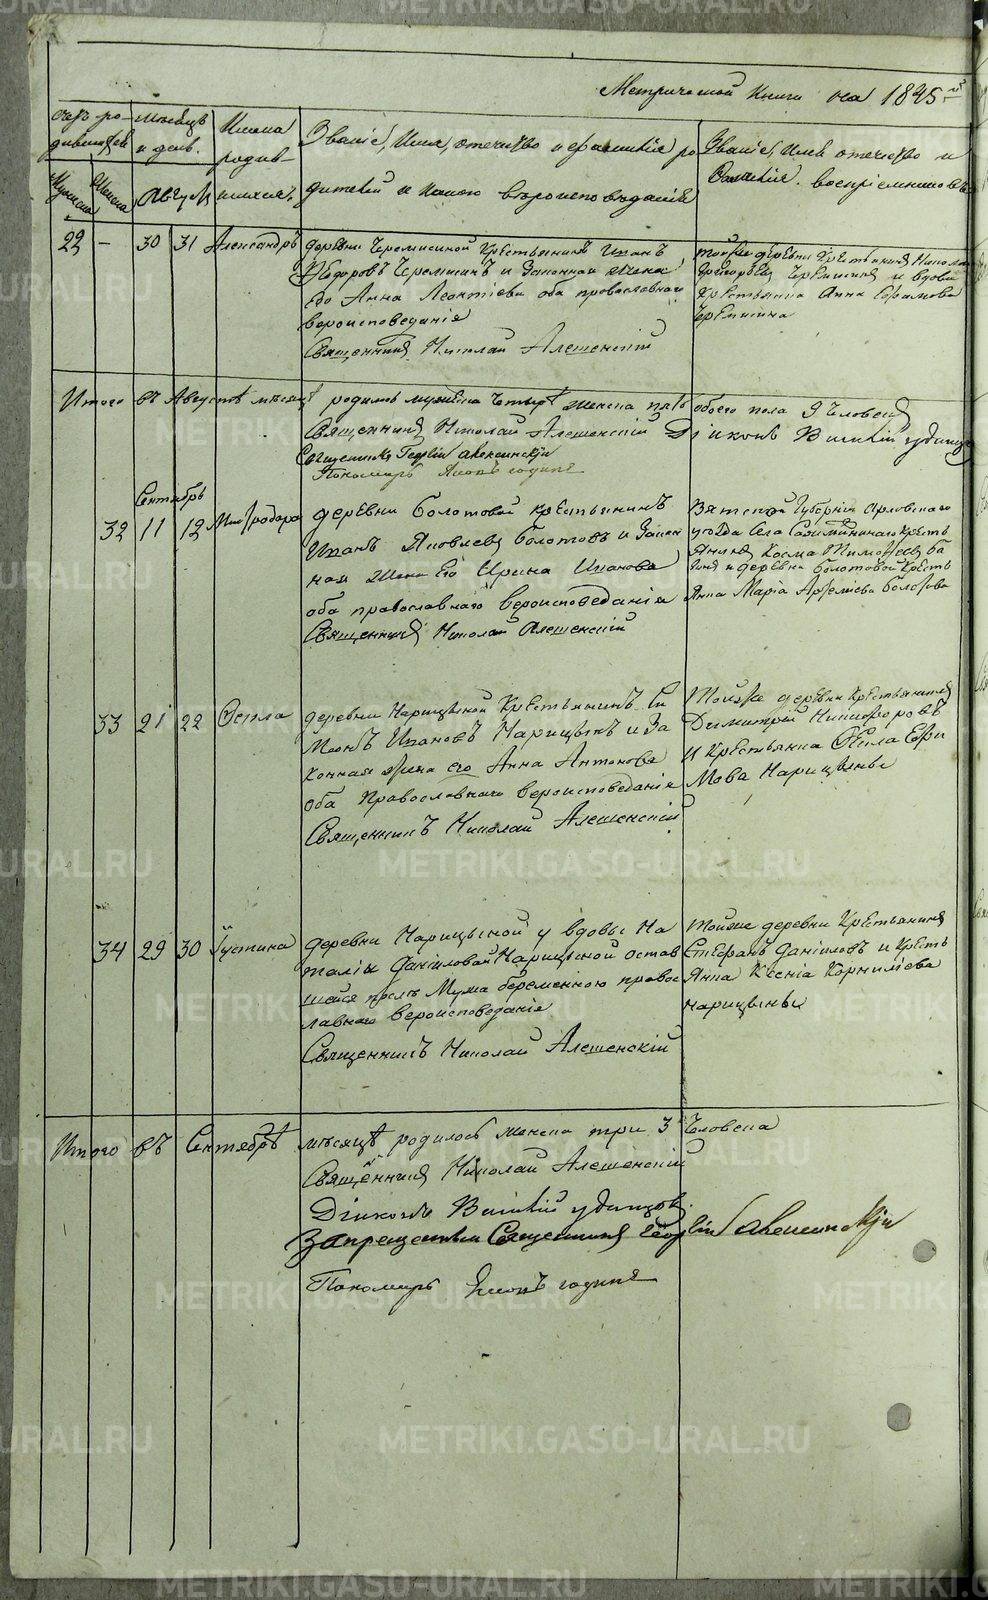 Метрической книги на 1845й
Счет ро-
дившихся
Мужска
Женска
месяцъ
и день.
Августъ
Имена
родив-
шихся.
Званіе, Имя, отечество и фамилія ро
дителей и какого вероисповеданія
Званіе, Имя отечество и
Фамилія воспріемниковъ
22 — 30 31 Александръ
деревни Черемисиной Крестьянинъ Иванъ
Федоровъ Черемисинъ и Законная жена
его Анна Леонтіева оба православнаго
вероисповеданія
Священникъ Николай Алешенскій
тойже деревни Крестьянинъ Никола
Григорьевъ Черемисинъ и вдова
Крестьянка Анна Ефимова
Черемисина
Итого въ Августе месяце родилось мужеска четыре женска пять обоего пола 9 человекъ
Священникъ Николай Алешенскій Діаконъ Василій удинцов
Священникъ Георгій Алексинскій
Пономарь Яковъ годинъ
Сентябрь
32 11 12 Митродора
деревни Болотовой крестьянинъ
Иванъ Яковлевъ Болотовъ и Закон
ная жена Его Ирина Иванова
оба православнаго вероисповеданія
Священникъ Николай Алешенскій
Вятской Губерніи Орловскаго
уезда Села крестъ
янинъ Косма Тимофеевъ
и деревни Болотовой Кресть
янка Маріа Артеміева Болотова
33 21 22 Фекла
деревни Нарицыной Крестьянинъ Си
меонъ Ивановъ Нарицынъ и За
конная жена его Анна Антонова
оба Православнаго вероисповеданія
Священникъ Николай Алешенскій
Тойже деревни Крестьянинъ
Димитрій Никифоровъ
и Крестьянка Фекла Ефи
мова Нарицыны
34 29 30 Іустина
деревни Нарицыной у вдовы На
таліи Даніиловой Нарицыной остав
шейся послъ Мужа беременною право
славнаго вероисповеданія
Священникъ Николай Алешенскій
Тойже деревни Крестьянинъ
Стефанъ Даніиловъ и Кресть
янка Ксенія Корниліева
нарицыны
Итого въ Сентябре месяце родилось женска три 3 Человека
Священникъ Николай Алешенскій
Діаконъ Василій удинцовъ
Запрещенный Священникъ Георгій Алексинскій
Пономарь Яковъ годинъ
METRIKI.GASO-URAL.RU